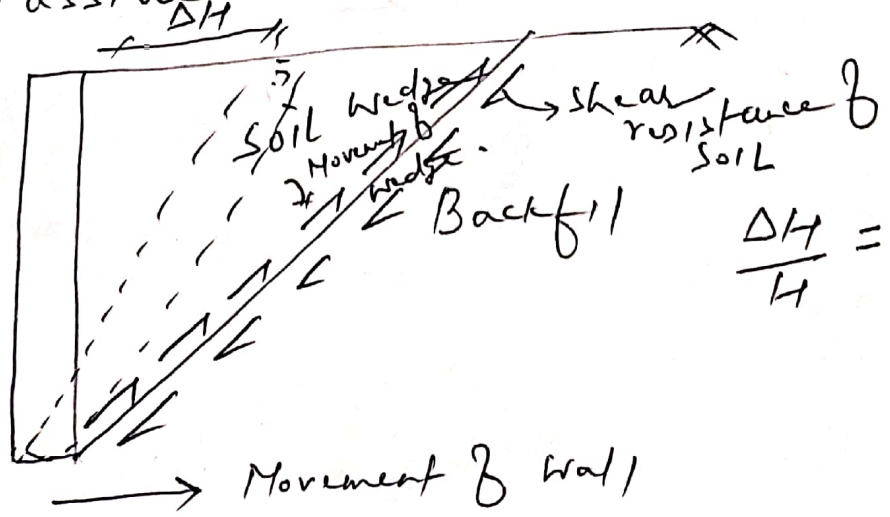 ΔH
SOIL wedge
Movement of
wedge.
shear
resistance of
SOIL
Backfill
ΔH/H =
Movement of wall